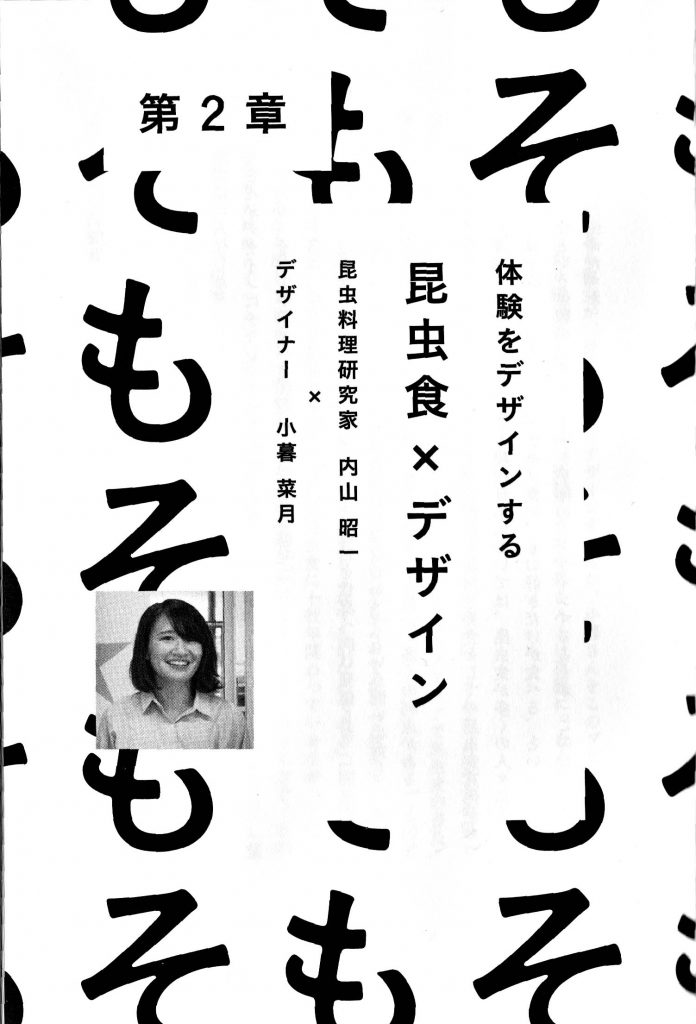 第2章
体験をデザインする
昆虫食×デザイン
昆虫料理研究家 内山 昭一
×
デザイナー 小暮 菜月
も
そ
そ
も
そ
も
そ